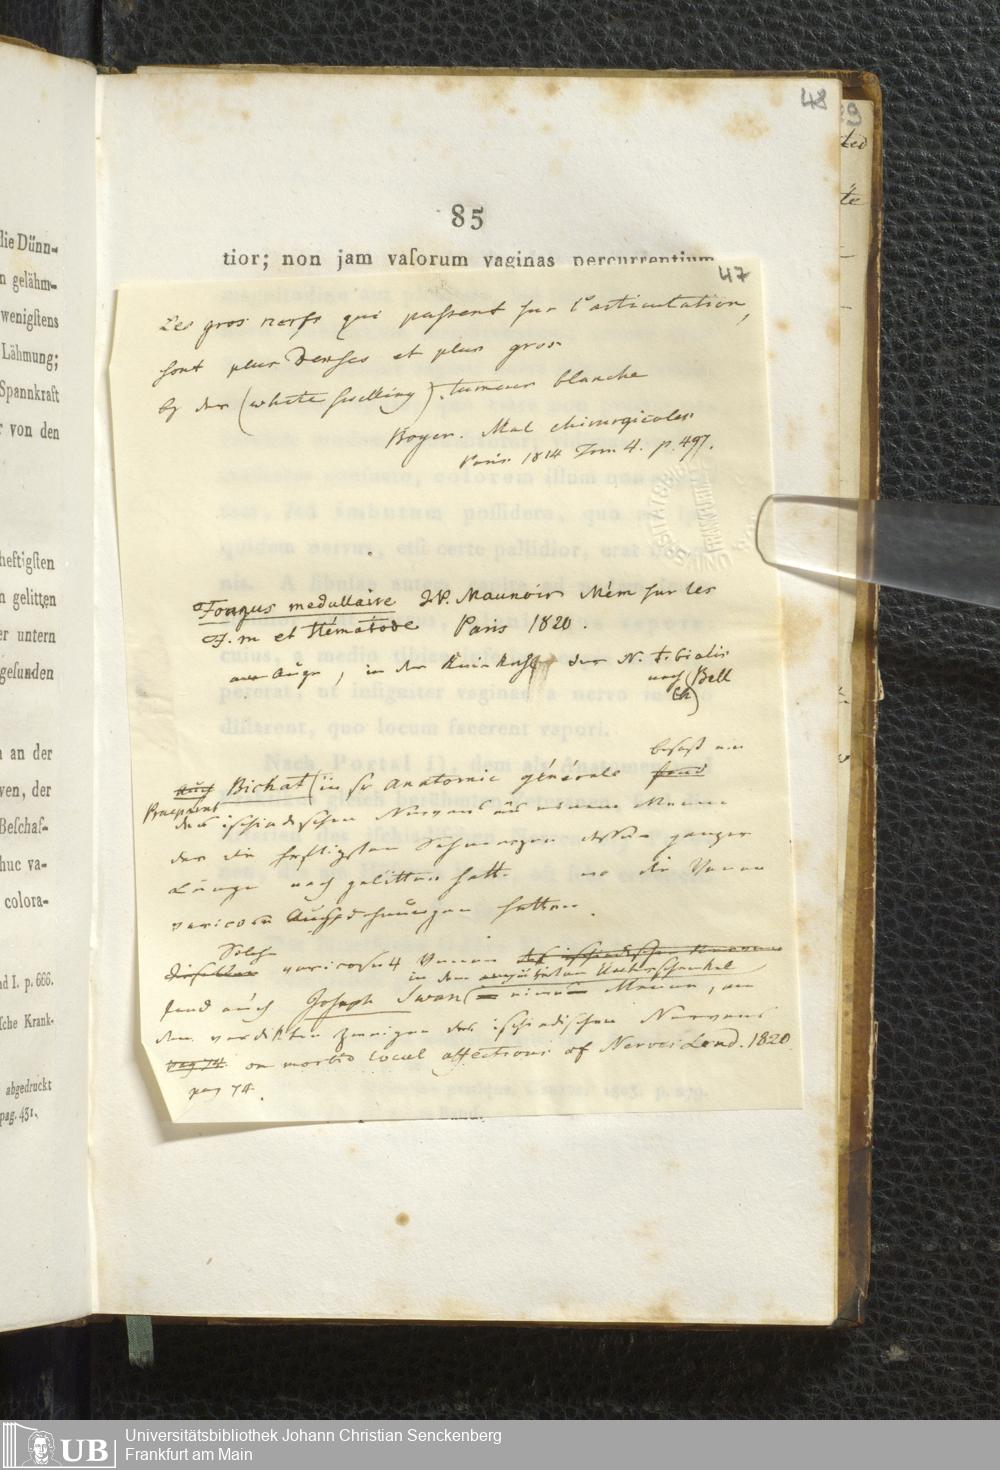 die Dünn-
n gelähm-
wenigſtens
Lähmung;
Spannkraft
von den
heftigſten
n gelitten
er untern
geſunden
an der
ven, der
Beſchaf-
huc va-
colora-
nd I. p. 666.
ſche Krank-
abgedruckt
pag. 431.
48
85
tior; non jam vaſorum vaginas percurrentium
47
Les gros nerfs qui passent sur l'articulation,
sont plus denses et plus gros
by der (white swelling) tumeur blanche
Boyer. Mal chirurgicales
Paris 1814 Tom 4. p. 497.
Fongus medullaire J.P. Maunoir Mém sur les
F. m et Hématode Paris 1820.
am Auge, in der Kniekehle der N. tibialis
nach (Bell
Ch)
besaß ein
Auch Bichat (in sr anatomie générale fand
Praeparat
des ischiadischen Nervens eines Mannes
der die heftigsten Schmerzen dessen ganzer
Länge nach gelitten hatte wo die Venen
varicose Ausdehnungen hatten.
Solche
Dieselben varicosen Venen des ischiadischen Nervens
in dem amputirten Unterschenkel
fand auch Joseph Swan einem Mann, an
den verdickten Zweigen des ischiadischen Nervens
pag 74. on morbid local affections of Nerves Lond. 1820
pag 74.
UB
Universitätsbibliothek Johann Christian Senckenberg
Frankfurt am Main